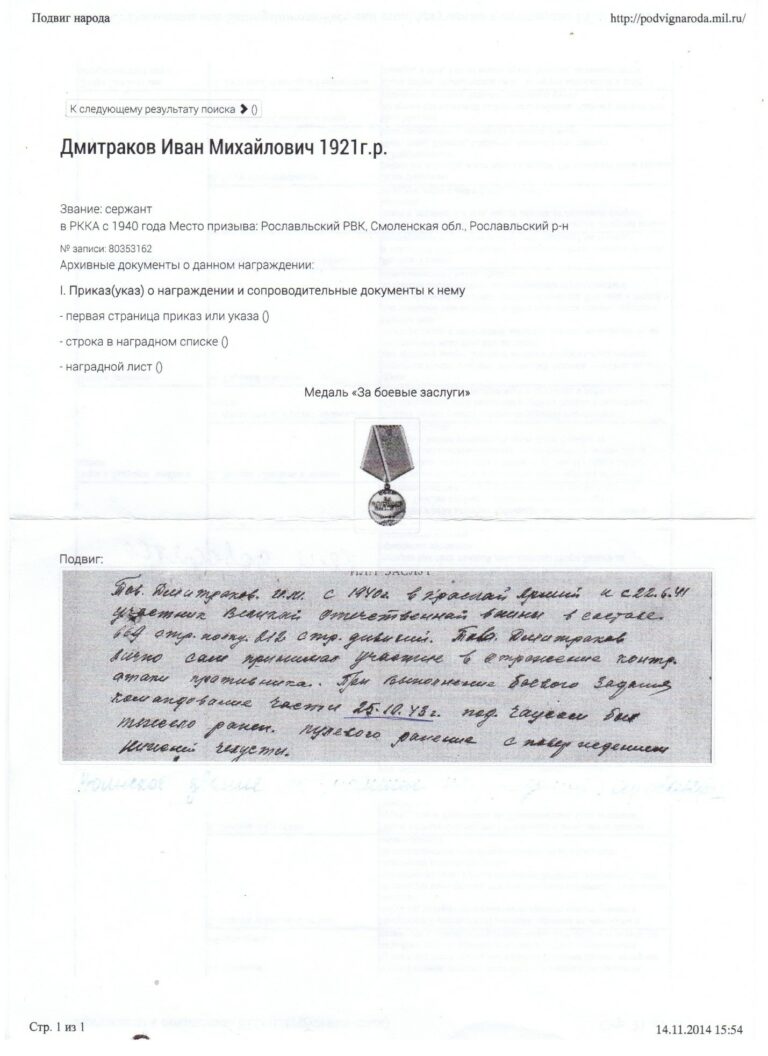 Подвиг народа
http://podvignaroda.mil.ru/
К следующему результату поиска ❯ ()
Дмитраков Иван Михайлович 1921г.р.
Звание: сержант
в РККА с 1940 года Место призыва: Рославльский РВК, Смоленская обл., Рославльский р-н
№ записи: 80353162
Архивные документы о данном награждении:
I. Приказ(указ) о награждении и сопроводительные документы к нему
- первая страница приказ или указа ()
- строка в наградном списке ()
- наградной лист ()
Медаль «За боевые заслуги»
Подвиг:
Тов. Дмитраков. И.М. с 1940г. в красной Армий и с 22.6.41
участник Великой отечественной войны в составе
669 стр. полку. 212 стр. дивизий. Тов. Дмитраков
лично сам принимал участие в отражение контр.
атаки противника. При выполнение боевого задания
командование части 25.10.43г. под. Чаусам был
тяжело ранен. пулевого ранение с повреждением
нижней челусты.
Стр. 1 из 1
14.11.2014 15:54